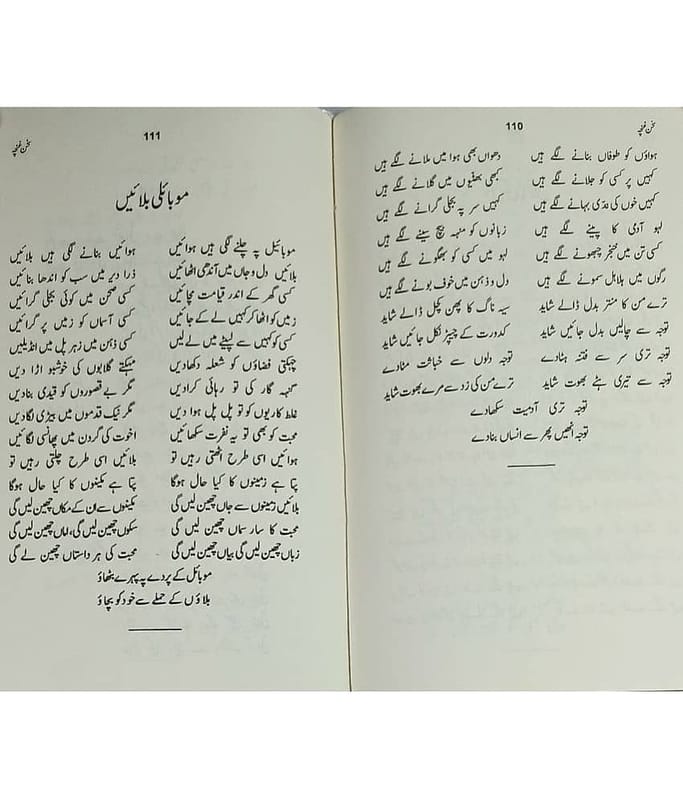 سخن غنچہ
110
ہواؤں کو طوفاں بنانے لگے ہیں دھواں بھی ہوا میں ملانے لگے ہیں
کہیں پر کسی کو جلانے لگے ہیں کبھی بھٹیوں میں گلانے لگے ہیں
کہیں خوں کی ندی بہانے لگے ہیں کہیں سر پہ بجلی گرانے لگے ہیں
لہو آدمی کا پینے لگے ہیں زبانوں کو منہہ بیچ سینے لگے ہیں
کسی تن میں خنجر چبھونے لگے ہیں لہو میں کسی کو بھگونے لگے ہیں
رگوں میں ہلاہل سمونے لگے ہیں دل و ذہن میں خوف بونے لگے ہیں
ترے من کا منتر بدل ڈالے شاید سیہ ناگ کا پھن کچل ڈالے شاید
توجہ سے چالیں بدل جائیں شاید کدورت کے چیپٹر نکل جائیں شاید
توجہ تری سر سے فتنہ ہٹادے توجہ دلوں سے خباثت مٹادے
توجہ سے تیری ہٹے بھوت شاید ترے من کی زد سے مرے بھوت شاید
توجہ تری آدمیت سکھادے
توجہ انھیں پھر سے انساں بنادے
111
سخن غنچہ
موبائلی بلائیں
موبائیل پہ چلنے لگی ہیں ہوائیں ہوائیں بنانے لگی ہیں بلائیں
بلائیں دل و جاں میں آندھی اٹھائیں ذرا دیر میں سب کو اندھا بنائیں
کسی گھر کے اندر قیامت مچائیں کسی صحن میں کوئی بجلی گرائیں
زمیں کو اٹھا کر کہیں لے کے جائیں کسی آسماں کو زمیں پر گرائیں
کسی کو کہیں سے لپٹے میں لے لیں کسی ذہن میں زہر پل میں انڈیلیں
چہکتی فضاؤں کو شعلہ دکھادیں مہکتے گلابوں کی خوشبو اڑا دیں
گنہہ گار کی تو رہائی کرادیں مگر بے قصوروں کو قیدی بنادیں
غلط کاریوں کو تو پل پل ہوا دیں مگر نیک قدموں میں بیڑی لگادیں
محبت کو بھی تو یہ نفرت سکھائیں اخوت کی گردن میں پھانسی لگائیں
ہوائیں اسی طرح اٹھتی رہیں تو بلائیں اسی طرح چلتی رہیں تو
پتا ہے زمینوں کا کیا حال ہوگا پتا ہے مکینوں کا کیا حال ہوگا
بلائیں زمینوں سے جاں چھین لیں گی مکینوں سے ان کے مکاں چھین لیں گی
محبت کا سارا سماں چھین لیں گی سکوں چھین لیں گی، اماں چھین لیں گی
زباں چھین لیں گی بیاں چھین لیں گی محبت کی ہر داستاں چھین لے گی
موبائل کے پردے پہ پہرے بٹھاؤ
بلاؤں کے حملے سے خود کو بچاؤ